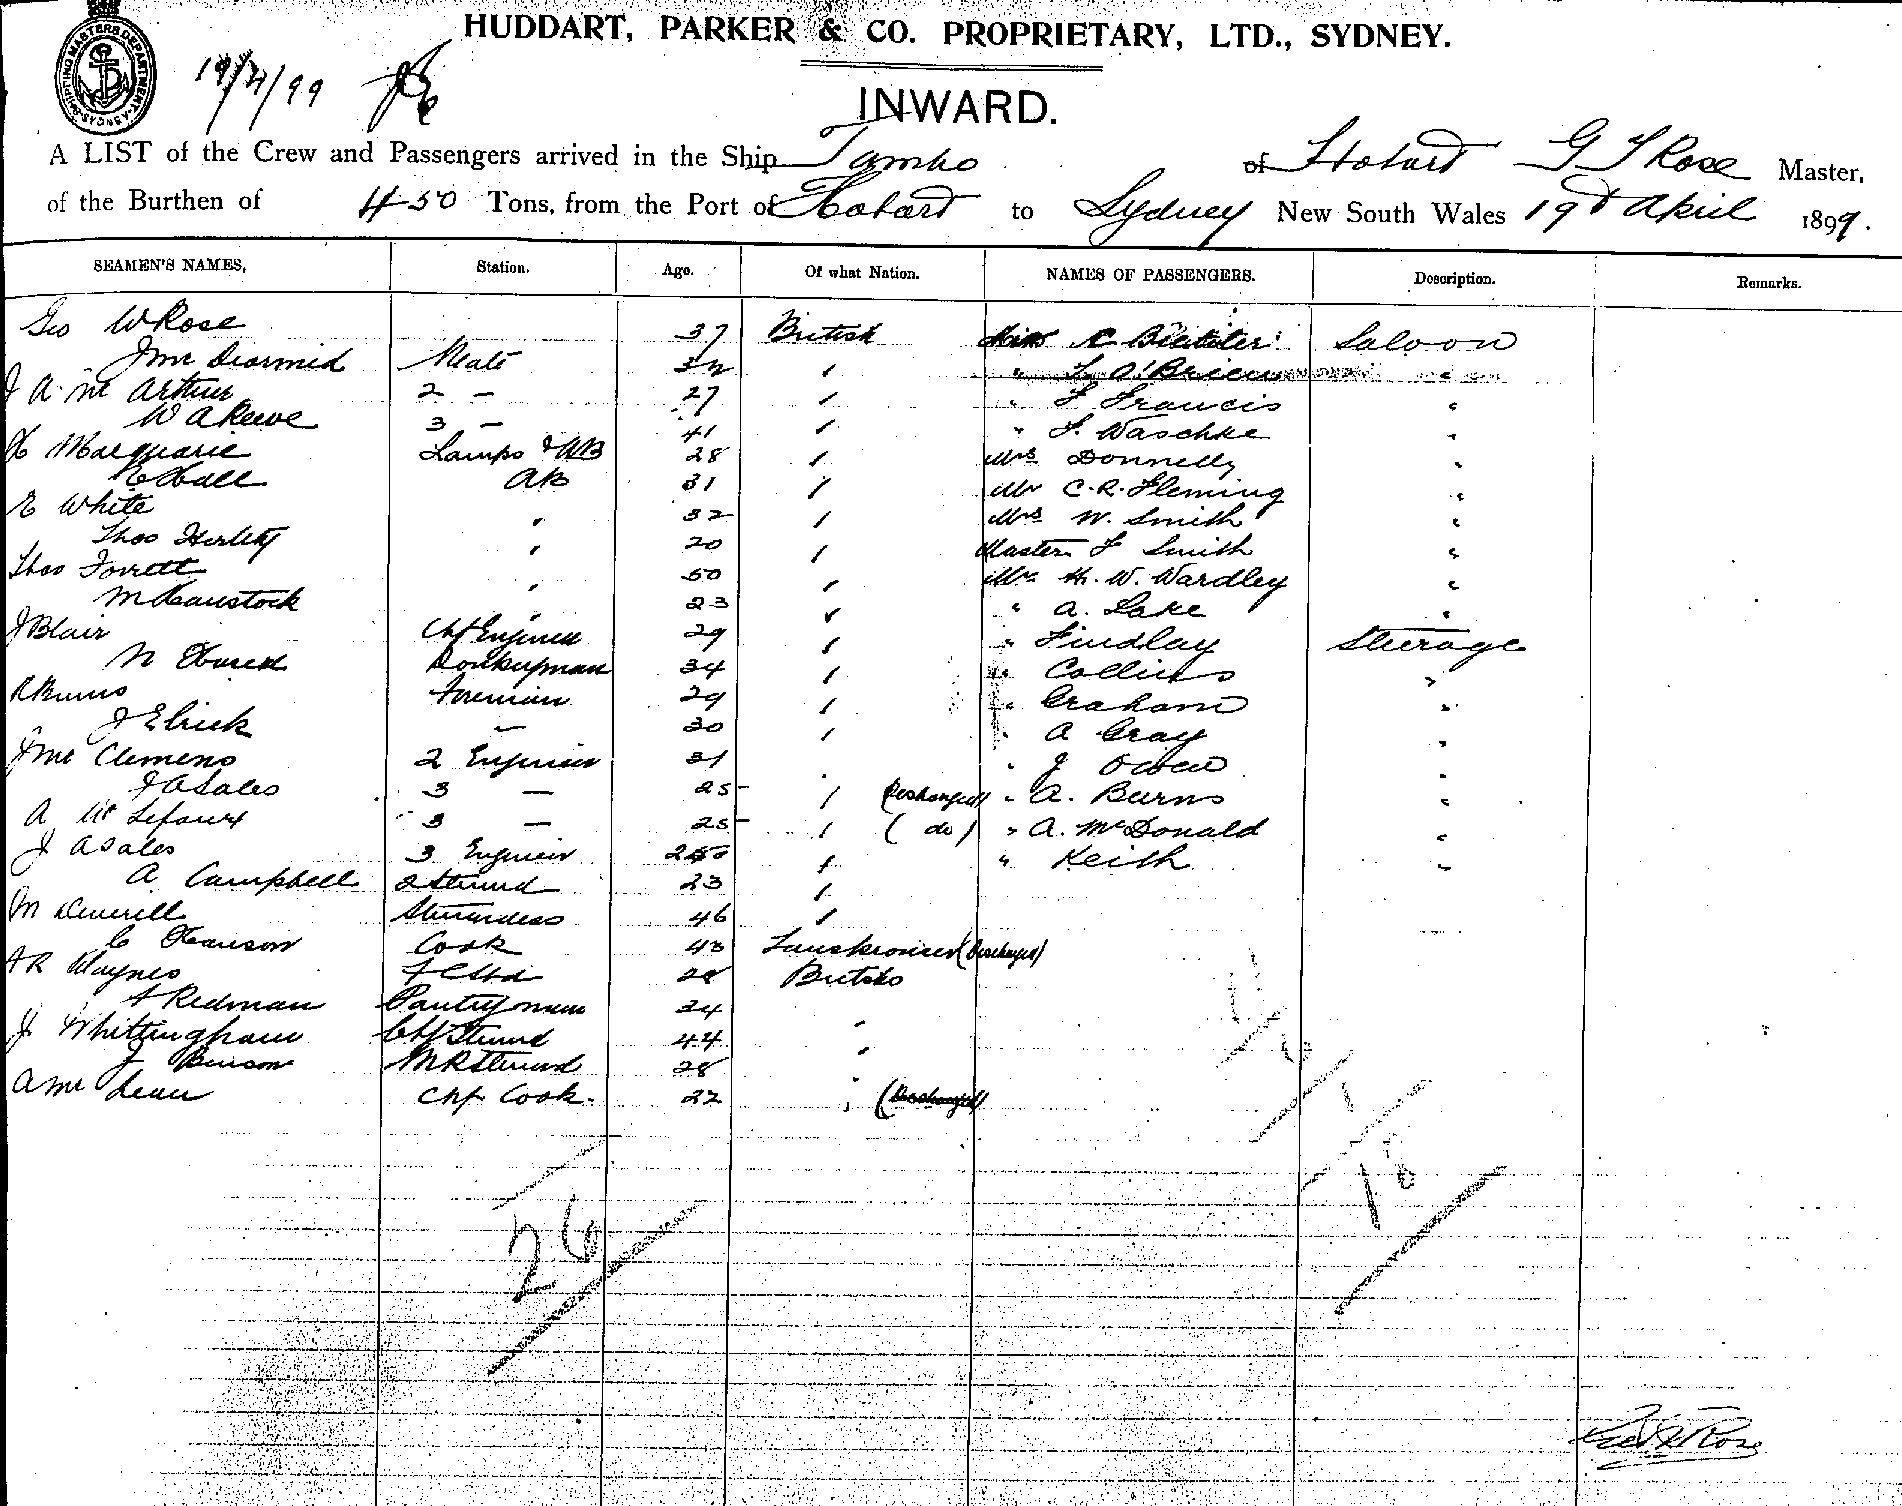 HUDDART, PARKER & CO. PROPRIETARY, LTD., SYDNEY.
SHIPPING MASTERS DEPARTMENT SYDNEY
19/4/99
INWARD.
A LIST of the Crew and Passengers arrived in the Ship Tambo of Hobart G Rose Master,
of the Burthen of 450 Tons, from the Port of Hobart to Sydney New South Wales 19th April 1899.
SEAMEN'S NAMES, Station. Age. Of what Nation. NAMES OF PASSENGERS. Description. Remarks.
Geo W Rose 37 British Miss C Saloon
J Mc Diarmid Mate " L O'Brien "
J A Mc Arthur 2 - 27 " " F Francis "
W A Reeve 3 - 41 " " F. Waschke "
Macquarie Lamps & AB 28 " Mrs Donnelly "
E Hall AB 31 " Mr C. R. Fleming "
E White " 32 " Mrs W. Smith "
Thos " 20 " Master F Smith "
Thos " 50 " Mr H. W. Wardley "
" 23 " " A. Lake "
J Blair Chf Engineer 29 " " Findlay Steerage
N Donkeyman 34 " " Collins "
R Burns Fireman 29 " " Graham "
J Elrick - 30 " " A Gray "
J Mc Clemens 2 Engineer 31 " " J Owen "
J A Sales 3 - 25 " (Discharged) " A. Burns "
A 3 - 25 " (do) " A. McDonald "
J A Sales 3 Engineer " " Keith "
A Campbell 2 Steward 23 "
M Deverell Stewardess 46 "
C Hanson Cook 43 (Discharged)
Haynes 28 British
Redman Pantryman 24
J Whittingham Chf Steward 44 "
J Benson Steward 28 "
A Mc Lean Chf Cook 22 " (Discharged)
26
18
Geo W Rose